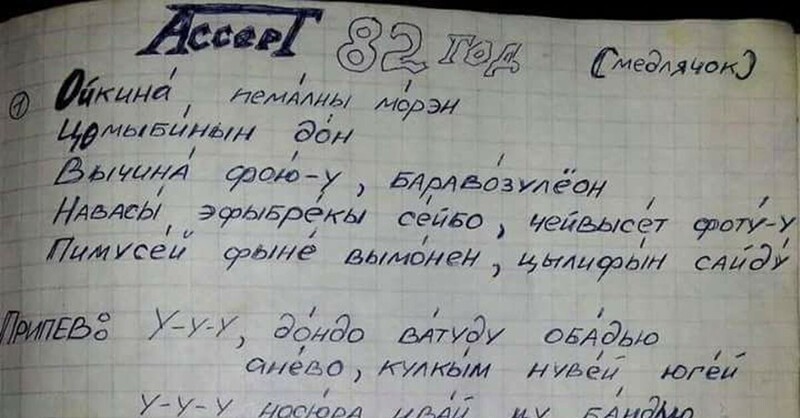 Accept 82 год (медлячок)
① Ойкина́ пема́лны мо́рэн
Цомыби́нын до́н
Вычина́ фою́-у, бараво́зулёон
Навасы́ эфыбре́кы се́йбо, чейвысе́т фоту́-у
Пимусе́й фыне́ вымо́нен, цылифы́н сайду́
Припев: У-у-у, до́ндо ва́туду оба́дью
ане́во, кулкы́м нуве́й юге́й
У-у-у